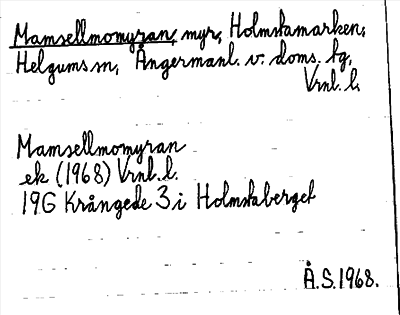 Mamsellmomyran, myr, Holmstamarken,
Helgums sn, Ångermanl. v. doms. tg,
Vrnl. l.
Mamsellmomyran
ek (1968) Vrnl. l.
19G Krångede 3 i Holmstaberget
Å.S. 1968.